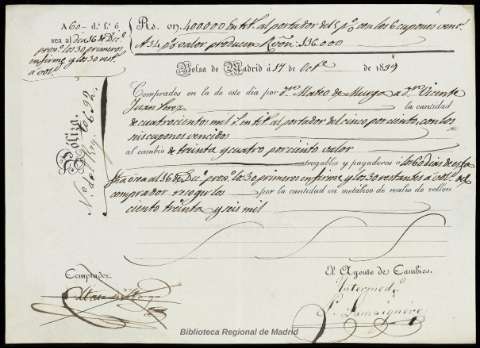 A 60 d.s f. 6
sea al dia 16 de Dic.e
prox.o los 30 primeros
enfirme y los 30 rest.s
a vol.d
Rs. vn. 400000 En tit.s al portador del 5 p% con los 6 cupones venc.s
A 34 p% valor producen R.s vn: 136.000
Bolsa de Madrid á 17 de Oct.e de 1839
Comprados en la de este dia por D.n Mateo de Murga a D.n Vicente
Juan Perez la cantidad
de cuatrocientos mil r.s en tit.s al portador del cinco por ciento, con los
seis cupones vencidos
al cambio de treinta y cuatro por ciento valor
entregables y pagaderos á los 60 dias de esta
fha ó sea al 16 de Dic.e prox.o los 30 primeros en firme y los 30 restantes a vol.d del
comprador por la cantidad en metálico de reales de vellon
ciento treinta y seis mil
Póliza.
N.o de Reg.
Comprador
El Agente de Cambios.
Intermed.o
Biblioteca Regional de Madrid